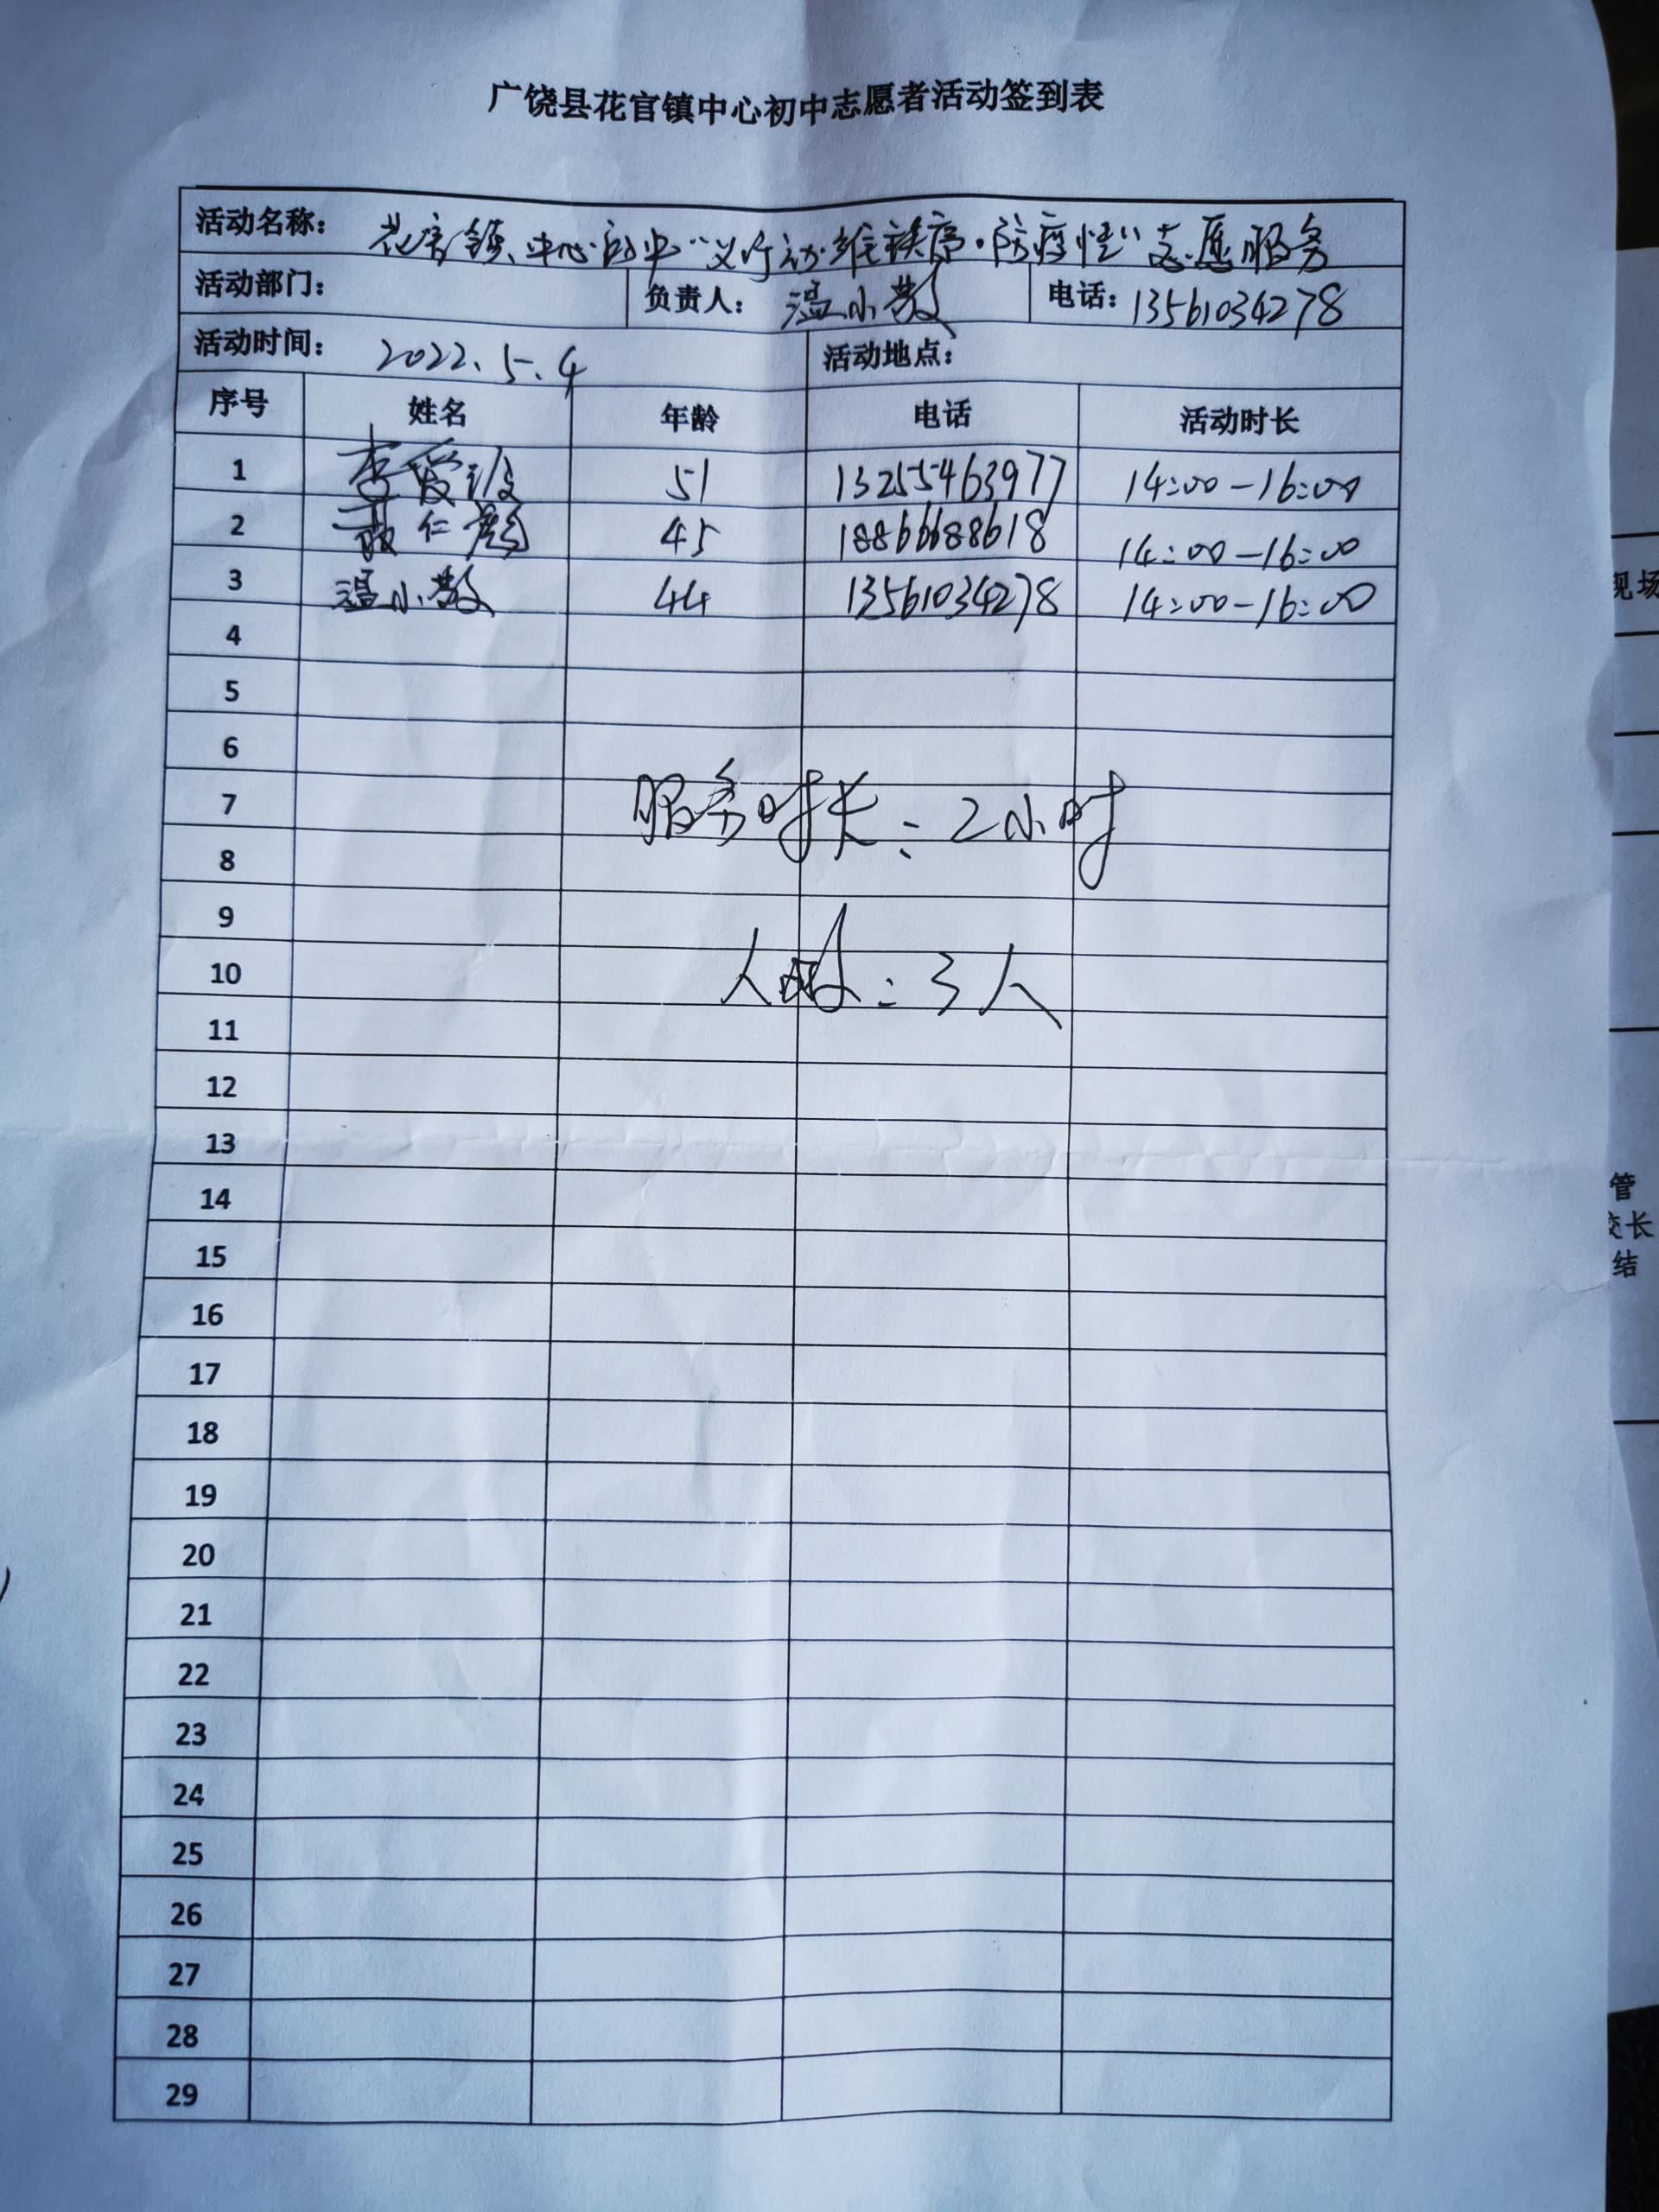 广饶县花官镇中心初中志愿者活动签到表
活动名称： 花官镇中心初中“义行动·维秩序·防疫情”志愿服务
活动部门： 负责人： 温小散 电话：13561034278
活动时间： 2022.5.4 活动地点：
序号 姓名 年龄 电话 活动时长
1 李爱 51 13255463977 14:00-16:00
2 仁 45 18866688618 14:00-16:00
3 温小散 44 13561034278 14:00-16:00
4
5
6
7
服务时长：2小时
8
9
10
人时：3人
11
12
13
14
15
16
17
18
19
20
21
22
23
24
25
26
27
28
29
现场
管
校长
结